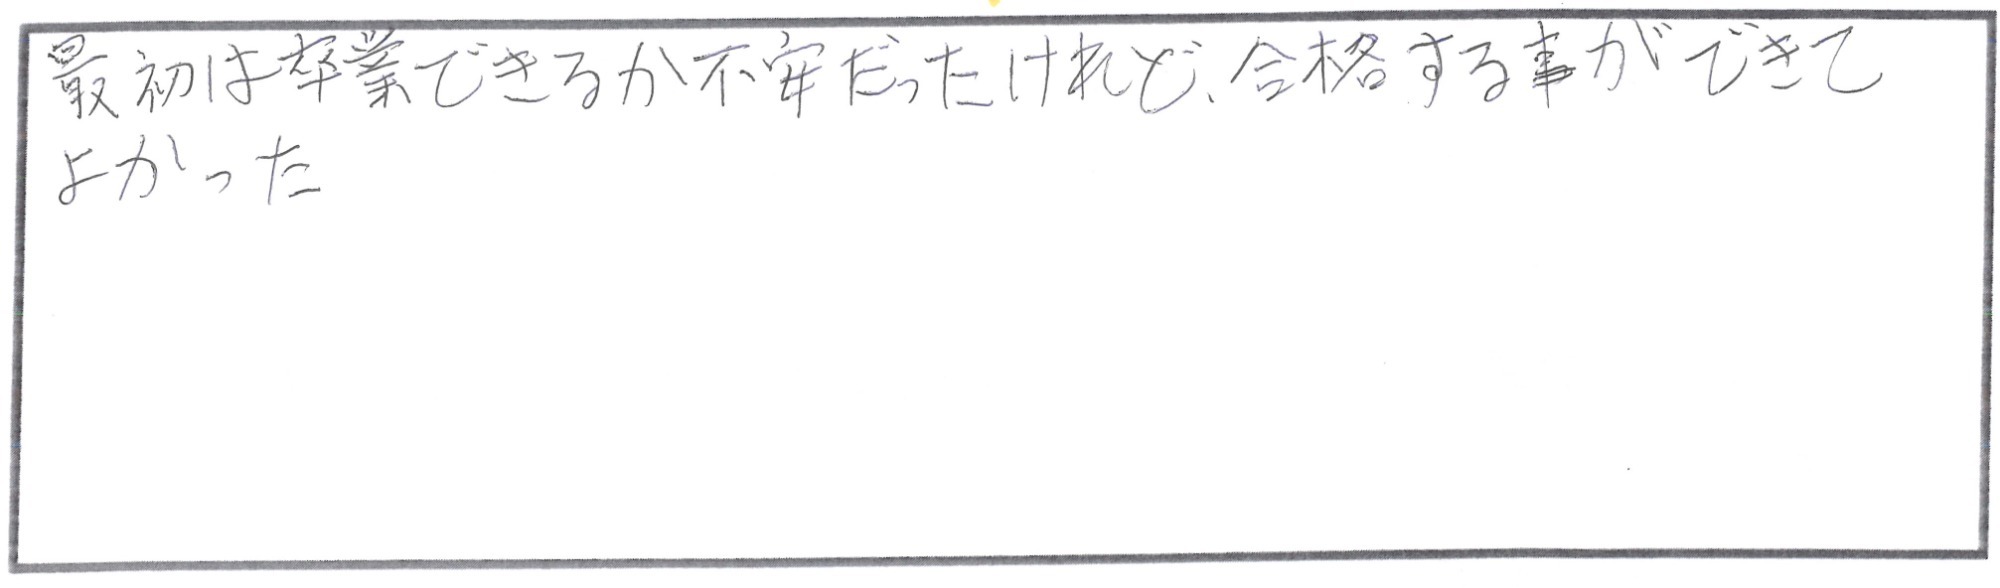 最初は卒業できるか不安だったけれど、合格する事ができて
よかった